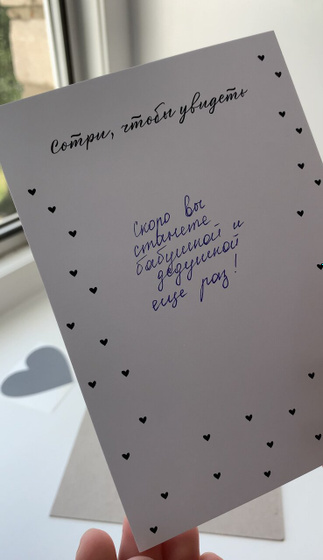 Сотри, чтобы увидеть
Скоро вы
станете
бабушкой и
дедушкой
еще раз!